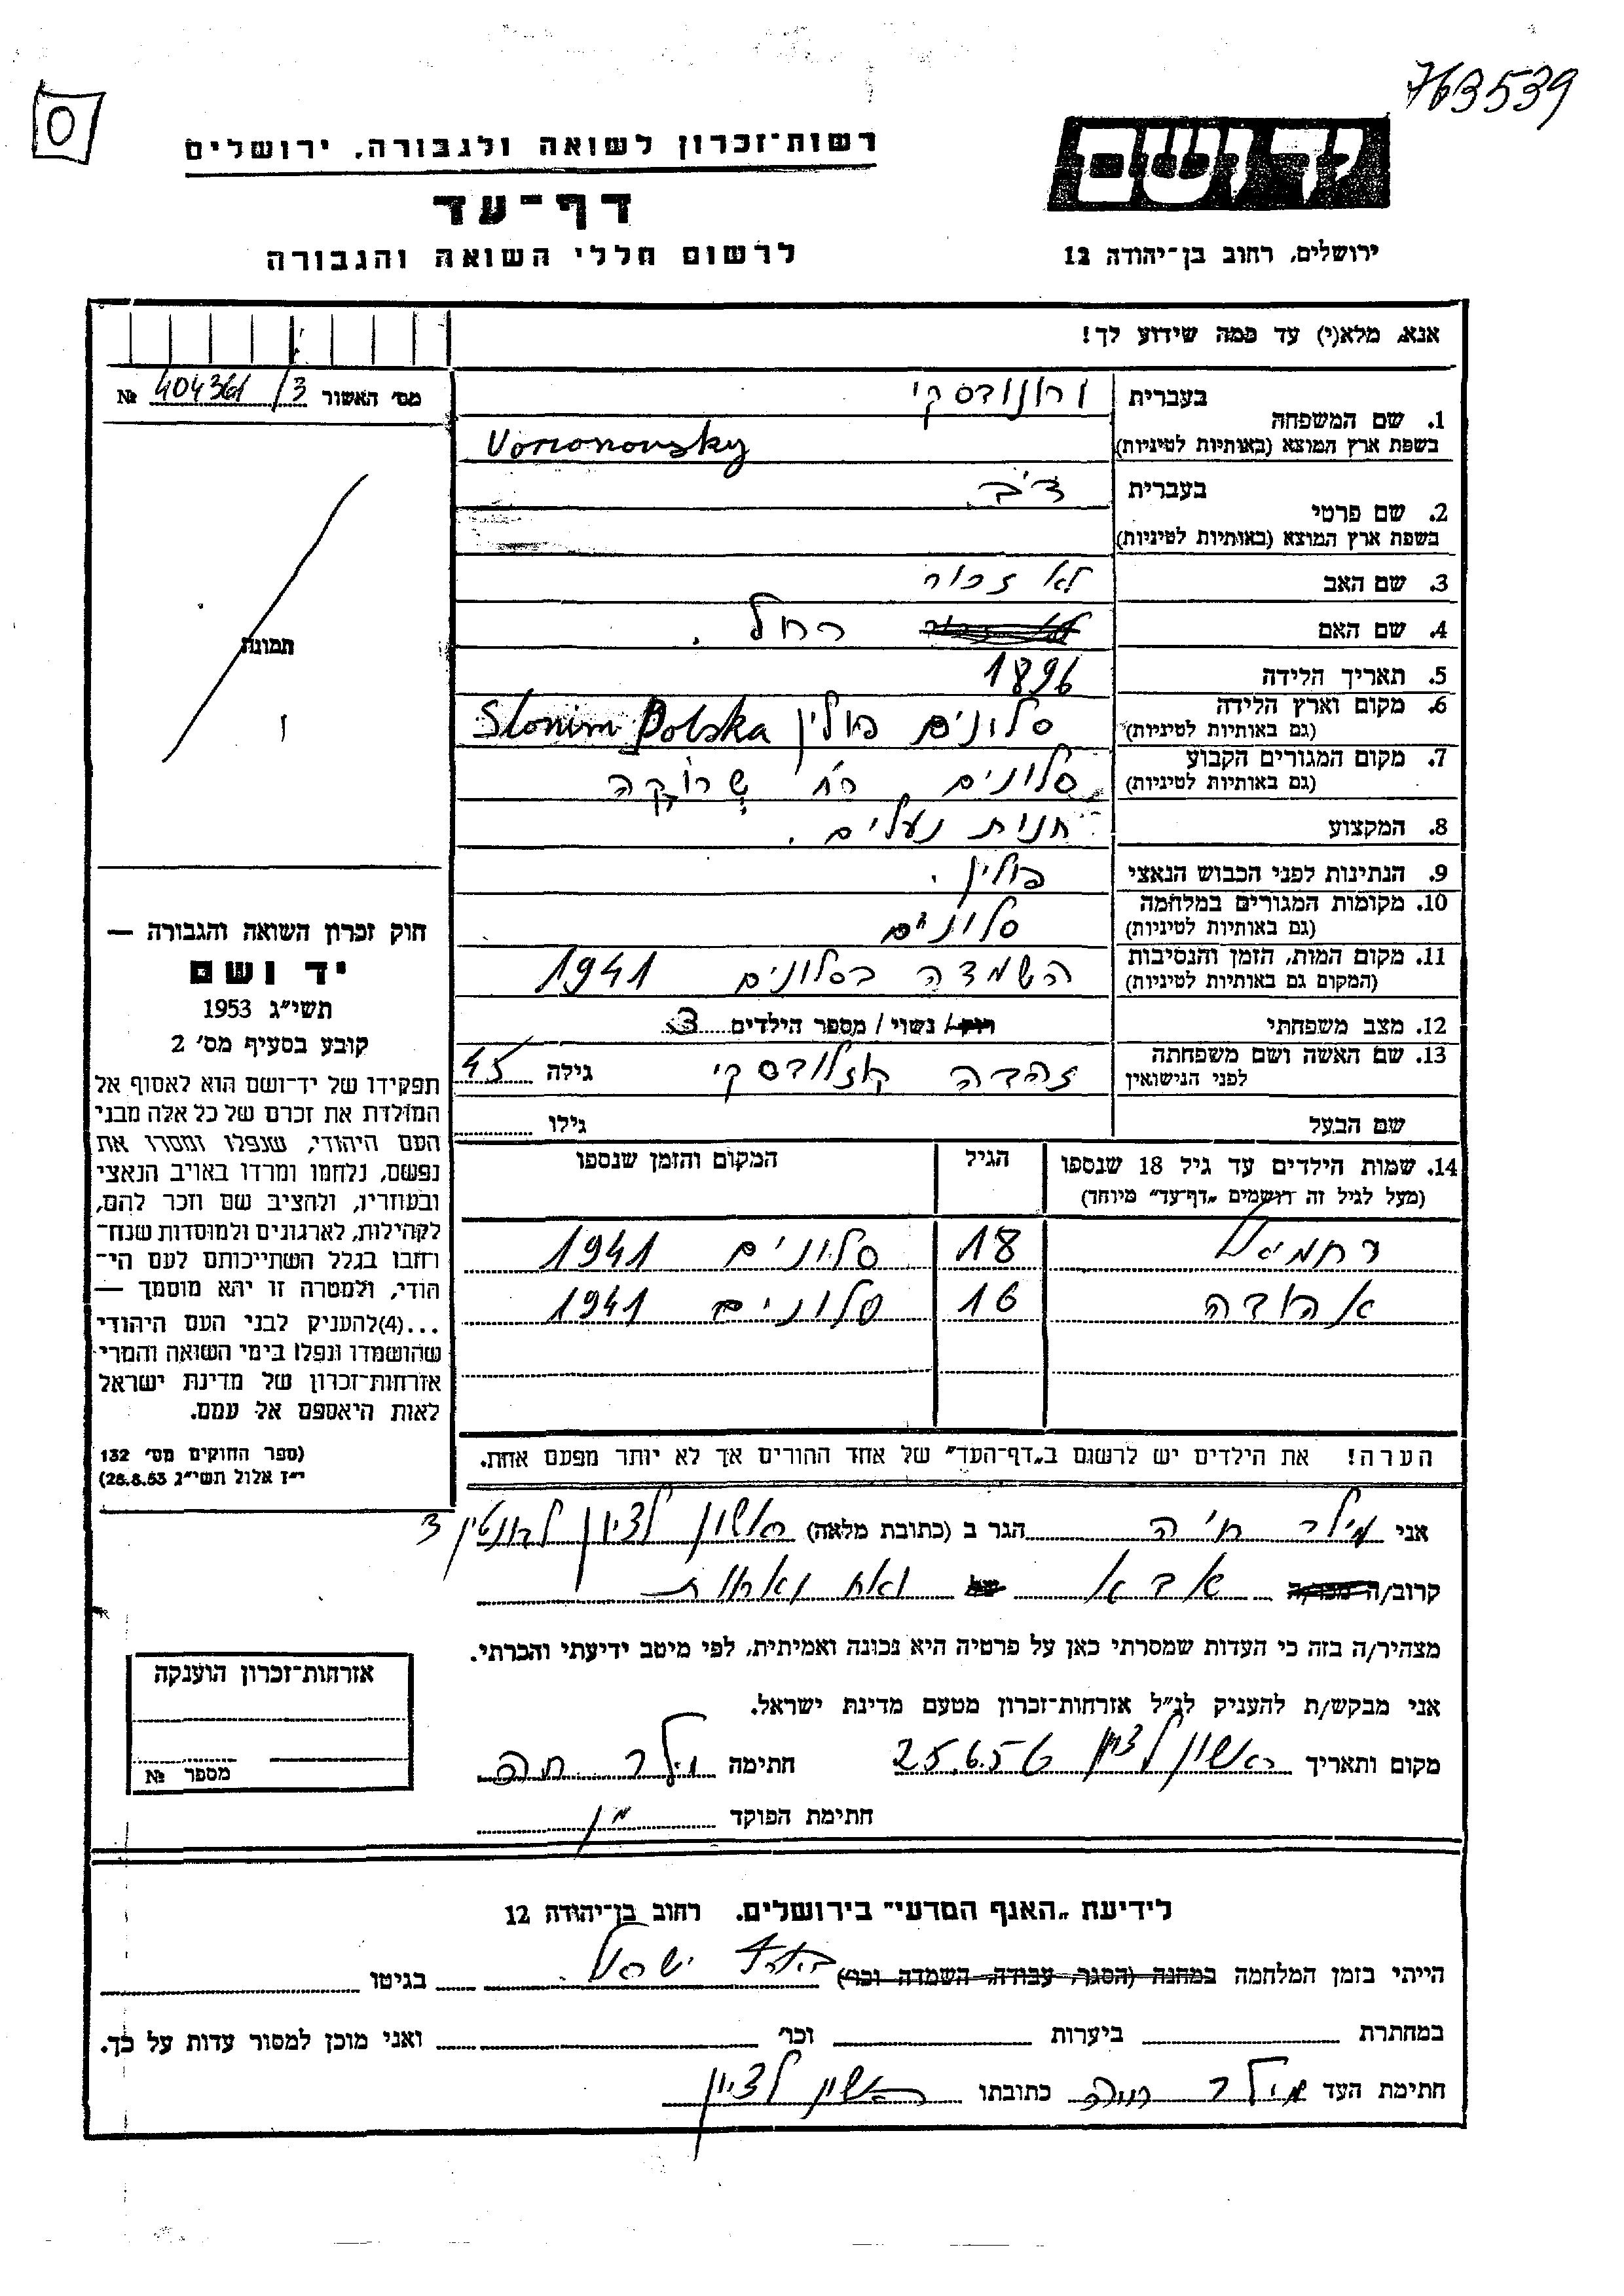 763539
יד ושם
רשות־זכרון לשואה ולגבורה, ירושלים
דף־עד
לרשום חללי השואה והגבורה
ירושלים, רחוב בן־יהודה 12
אנא, מלא(י) עד כמה שידוע לך!
מס׳ האשור 404361/3 №
תמונה
בעברית
1. שם המשפחה
בשפת ארץ המוצא (באותיות לטיניות) Voronovsky
בעברית דב
2. שם פרטי
בשפת ארץ המוצא (באותיות לטיניות)
3. שם האב לא זכור
4. שם האם רחל.
5. תאריך הלידה 1896
6. מקום וארץ הלידה סלונים פולין Slonim Polska
(גם באותיות לטיניות)
7. מקום המגורים הקבוע סלונים רח׳
(גם באותיות לטיניות)
8. המקצוע חנות נעלים.
9. הנתינות לפני הכבוש הנאצי פולין.
10. מקומות המגורים במלחמה סלונים
(גם באותיות לטיניות)
11. מקום המות, הזמן והנסיבות השמדה בסלונים 1941
(המקום גם באותיות לטיניות)
12. מצב משפחתי רווק/ נשוי/ מספר הילדים 3
13. שם האשה ושם משפחתה זהבה גילה 45
לפני הנישואין
שם הבעל גילו
14. שמות הילדים עד גיל 18 שנספו הגיל המקום והזמן שנספו
(מעל לגיל זה רושמים „דף־עד״ מיוחד)
ירחמיאל 18 סלונים 1941
16 סלונים 1941
הערה! את הילדים יש לרשום ב„דף־העד״ של אחד ההורים אך לא יותר מפעם אחת.
חוק זכרון השואה והגבורה —
יד ושם
תשי״ג 1953
קובע בסעיף מס׳ 2
תפקידו של יד־ושם הוא לאסוף אל
המולדת את זכרם של כל אלה מבני
העם היהודי, שנפלו ומסרו את
נפשם, נלחמו ומרדו באויב הנאצי
ובעוזריו, ולהציב שם וזכר להם,
לקהילות, לארגונים ולמוסדות שנח־
רבו בגלל השתייכותם לעם הי־
הודי, ולמטרה זו יהא מוסמך —
...(4)להעניק לבני העם היהודי
שהושמדו ונפלו בימי השואה והמרי
אזרחות־זכרון של מדינת ישראל
לאות היאספם אל עמם.
(ספר החוקים מס׳ 132
י״ז אלול תשי״ג 28.8.53)
אני מילר חיה הגר ב (כתובת מלאה) ראשון לציון 3
קרוב/ה מכר/ה אבא של ואח ואחות
מצהיר/ה בזה כי העדות שמסרתי כאן על פרטיה היא נכונה ואמיתית, לפי מיטב ידיעתי והכרתי.
אני מבקש/ת להעניק לנ״ל אזרחות־זכרון מטעם מדינת ישראל.
מקום ותאריך ראשון לציון 25.6.56 חתימה מילר חיה
חתימת הפוקד
אזרחות־זכרון הוענקה
מספר №
לידיעת „האגף המדעי״ בירושלים, רחוב בן־יהודה 12
הייתי בזמן המלחמה במחנה (הסגר, עבודה, השמדה וכו׳) בארץ ישראל בגיטו
במחתרת ביערות וכו׳ ואני מוכן למסור עדות על כך.
חתימת העד מילר חיה כתובתו ראשון לציון